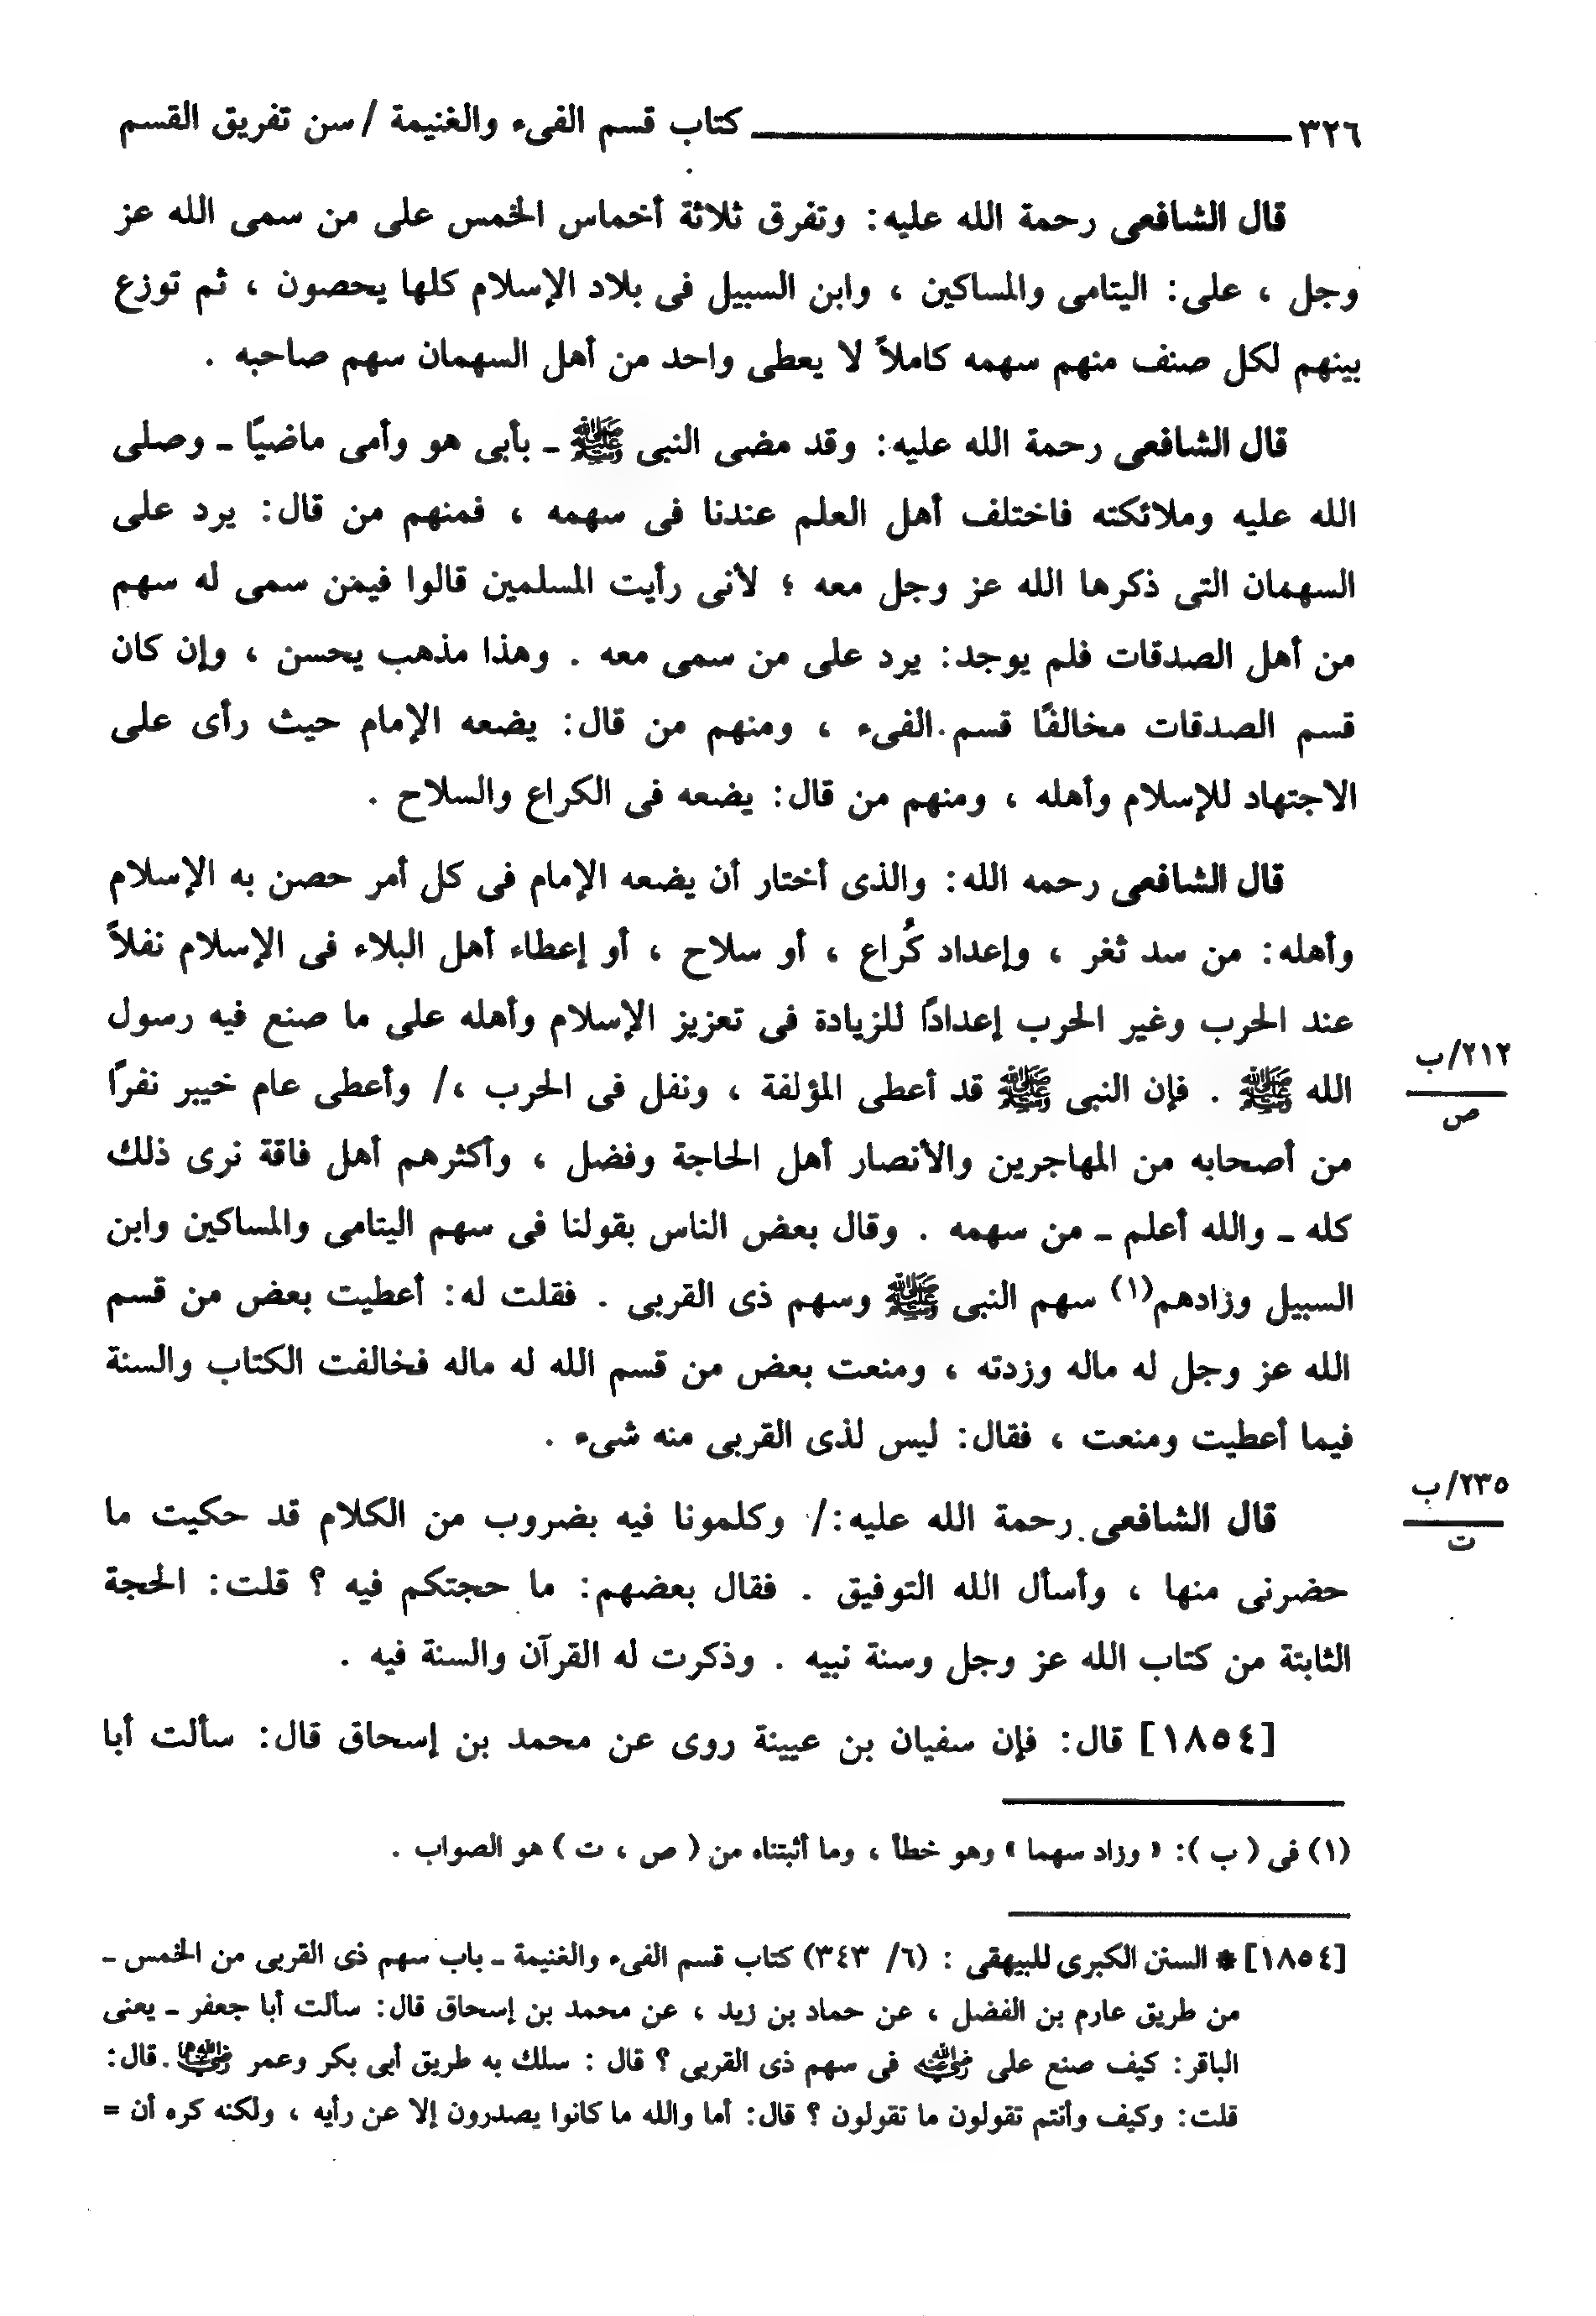 ٣٢٦ كتاب قسم الفىء والغنيمة / سن تفريق القسم
قال الشافعى رحمة الله عليه: وتفرق ثلاثة أخماس الخمس على من سمى الله عز
وجل ، على: اليتامى والمساكين ، وابن السبيل فى بلاد الإسلام كلها يحصون ، ثم توزع
بينهم لكل صنف منهم سهمه كاملاً لا يعطى واحد من أهل السهمان سهم صاحبه .
قال الشافعى رحمة الله عليه: وقد مضى النبى ﷺ ـ بأبى هو وأمى ماضيًا ـ وصلى
الله عليه وملائكته فاختلف أهل العلم عندنا فى سهمه ، فمنهم من قال: يرد على
السهمان التى ذكرها الله عز وجل معه ؛ لأنى رأيت المسلمين قالوا فيمن سمى له سهم
من أهل الصدقات فلم يوجد: يرد على من سمى معه . وهذا مذهب يحسن ، وإن كان
قسم الصدقات مخالفًا قسم الفىء ، ومنهم من قال: يضعه الإمام حيث رأى على
الاجتهاد للإسلام وأهله ، ومنهم من قال: يضعه فى الكراع والسلاح .
قال الشافعى رحمه الله: والذى أختار أن يضعه الإمام فى كل أمر حصن به الإسلام
وأهله: من سد ثغر ، وإعداد كُراع ، أو سلاح ، أو إعطاء أهل البلاء فى الإسلام نفلاً
عند الحرب وغير الحرب إعدادًا للزيادة فى تعزيز الإسلام وأهله على ما صنع فيه رسول
الله ﷺ . فإن النبى ﷺ قد أعطى المؤلفة ، ونفل فى الحرب ،/ وأعطى عام خيبر نفرًا
٢١٢/ب
ص
من أصحابه من المهاجرين والأنصار أهل الحاجة وفضل ، وأكثرهم أهل فاقة نرى ذلك
كله ـ والله أعلم ـ من سهمه . وقال بعض الناس بقولنا فى سهم اليتامى والمساكين وابن
السبيل وزادهم(١) سهم النبى ﷺ وسهم ذى القربى . فقلت له: أعطيت بعض من قسم
الله عز وجل له ماله وزدته ، ومنعت بعض من قسم الله له ماله فخالفت الكتاب والسنة
فيما أعطيت ومنعت ، فقال: ليس لذى القربى منه شىء .
قال الشافعى رحمة الله عليه:/ وكلمونا فيه بضروب من الكلام قد حكيت ما
٢٣٥/ب
ت
حضرنى منها ، وأسأل الله التوفيق . فقال بعضهم: ما حجتكم فيه ؟ قلت: الحجة
الثابتة من كتاب الله عز وجل وسنة نبيه . وذكرت له القرآن والسنة فيه .
[١٨٥٤] قال: فإن سفيان بن عيينة روى عن محمد بن إسحاق قال: سألت أبا
(١) فى ( ب ): « وزاد سهما » وهو خطأ ، وما أثبتناه من ( ص ، ت ) هو الصواب .
[١٨٥٤] * السنن الكبرى للبيهقى : (٦/ ٣٤٣) كتاب قسم الفىء والغنيمة ـ باب سهم ذى القربى من الخمس ـ
من طريق عارم بن الفضل ، عن حماد بن زيد ، عن محمد بن إسحاق قال: سألت أبا جعفر ـ يعنى
الباقر: كيف صنع على رضي الله عنه فى سهم ذى القربى ؟ قال : سلك به طريق أبى بكر وعمر رضي الله عنهما . قال:
قلت: وكيف وأنتم تقولون ما تقولون ؟ قال: أما والله ما كانوا يصدرون إلا عن رأيه ، ولكنه كره أن =